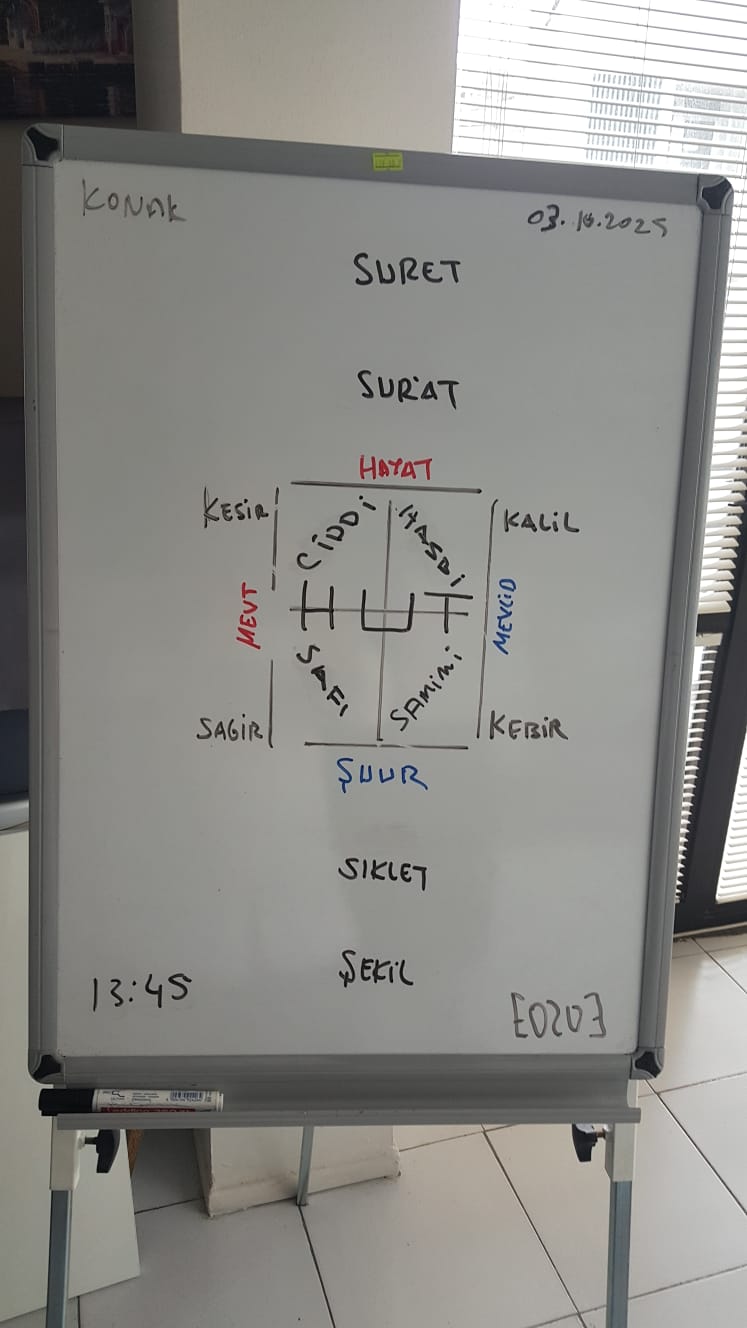 KONAK
03.10.2025
SURET
SUR'AT
HAYAT
KESİR
CİDDİ
HASBİ
KALİL
MEVT
HUT
MEVLİD
SAFI
SAMİMİ
SAGİR
KEBİR
ŞUUR
SIKLET
ŞEKİL
13:45
[0203]